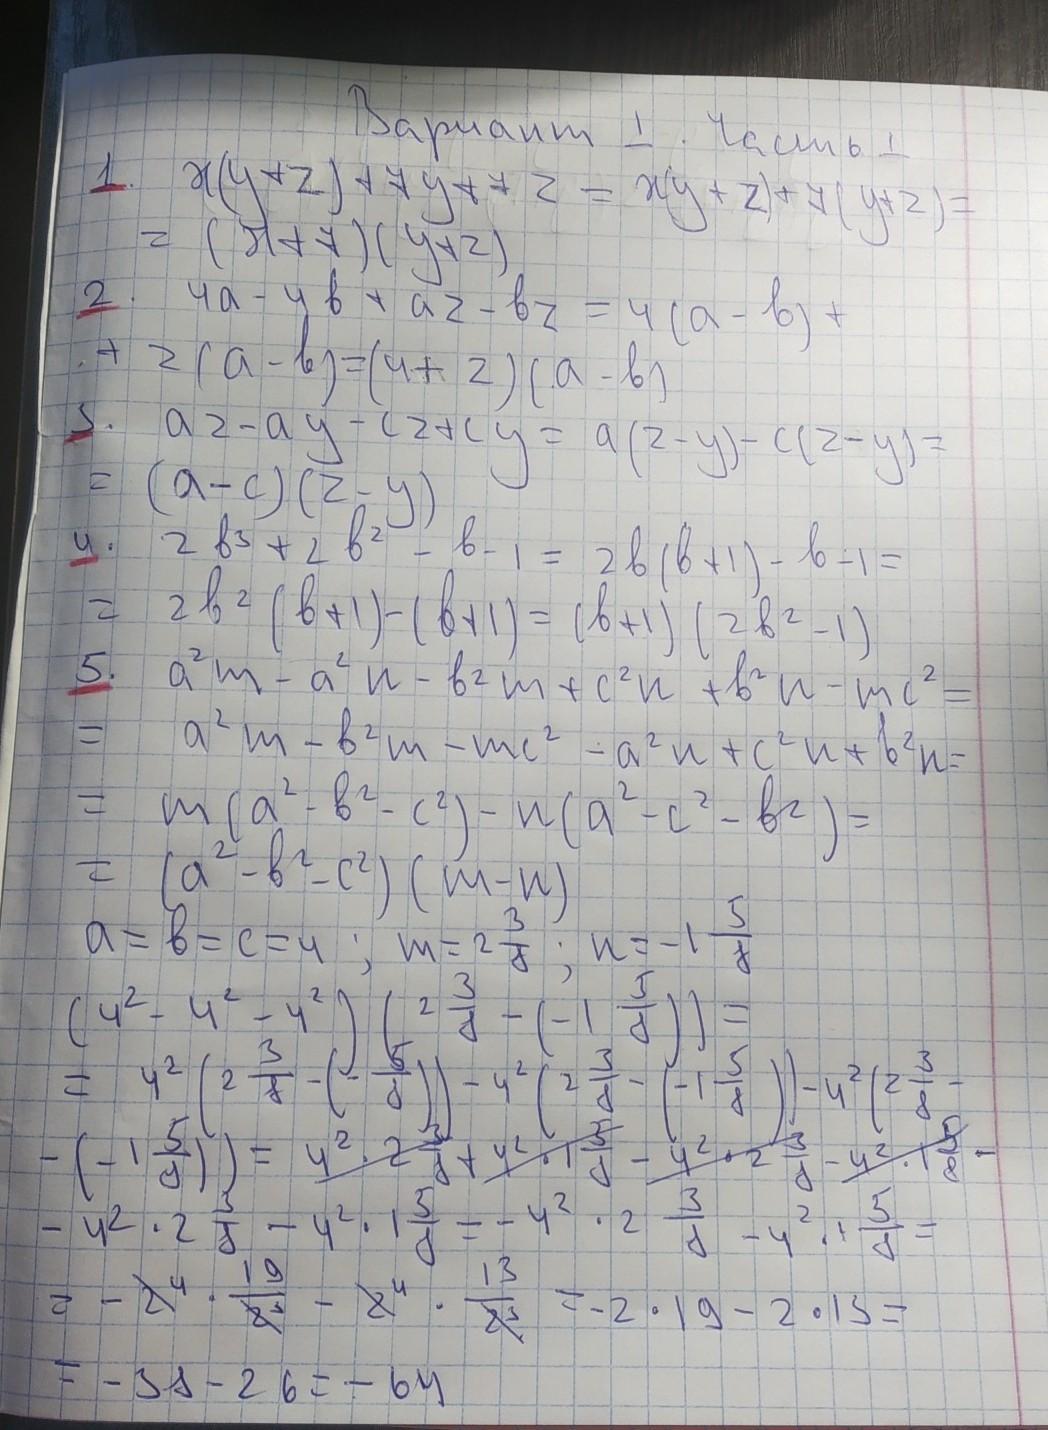 Вариант 1. Часть 1
1. x(y+z)+7y+7z = x(y+z)+7(y+z)=
= (x+7)(y+z)
2. 4a-4b+az-bz = 4(a-b)+
+ z(a-b)=(4+z)(a-b)
3. az-ay-cz+cy = a(z-y)-c(z-y)=
= (a-c)(z-y)
4. 2b³+2b²-b-1 = 2b(b+1)-b-1=
= 2b²(b+1)-(b+1)=(b+1)(2b²-1)
5. a²m-a²n-b²m+c²n+b²n-mc²=
= a²m-b²m-mc²-a²n+c²n+b²n=
= m(a²-b²-c²)-n(a²-c²-b²)=
= (a²-b²-c²)(m-n)
a=b=c=4; m=2 3/8; n=-1 5/8
(4²-4²-4²)(2 3/8-(-1 5/8))=
= 4²(2 3/8-(-5/8))-4²(2 3/8-(-1 5/8))-4²(2 3/8-
-(-1 5/8))= 4²·2 3/8+4²·1 5/8-4²·2 3/8-4²·1 5/8-
-4²·2 3/8-4²·1 5/8=-4²·2 3/8-4²·1 5/8=
= -2⁴·19/2³-2⁴·13/2³=-2·19-2·13=
= -38-26=-64